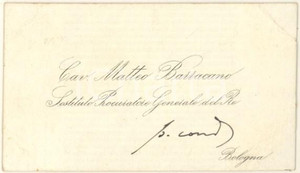 Cav. Matteo Barracano
Sostituto Procuratore Generale del Re
p. cond.
Bologna